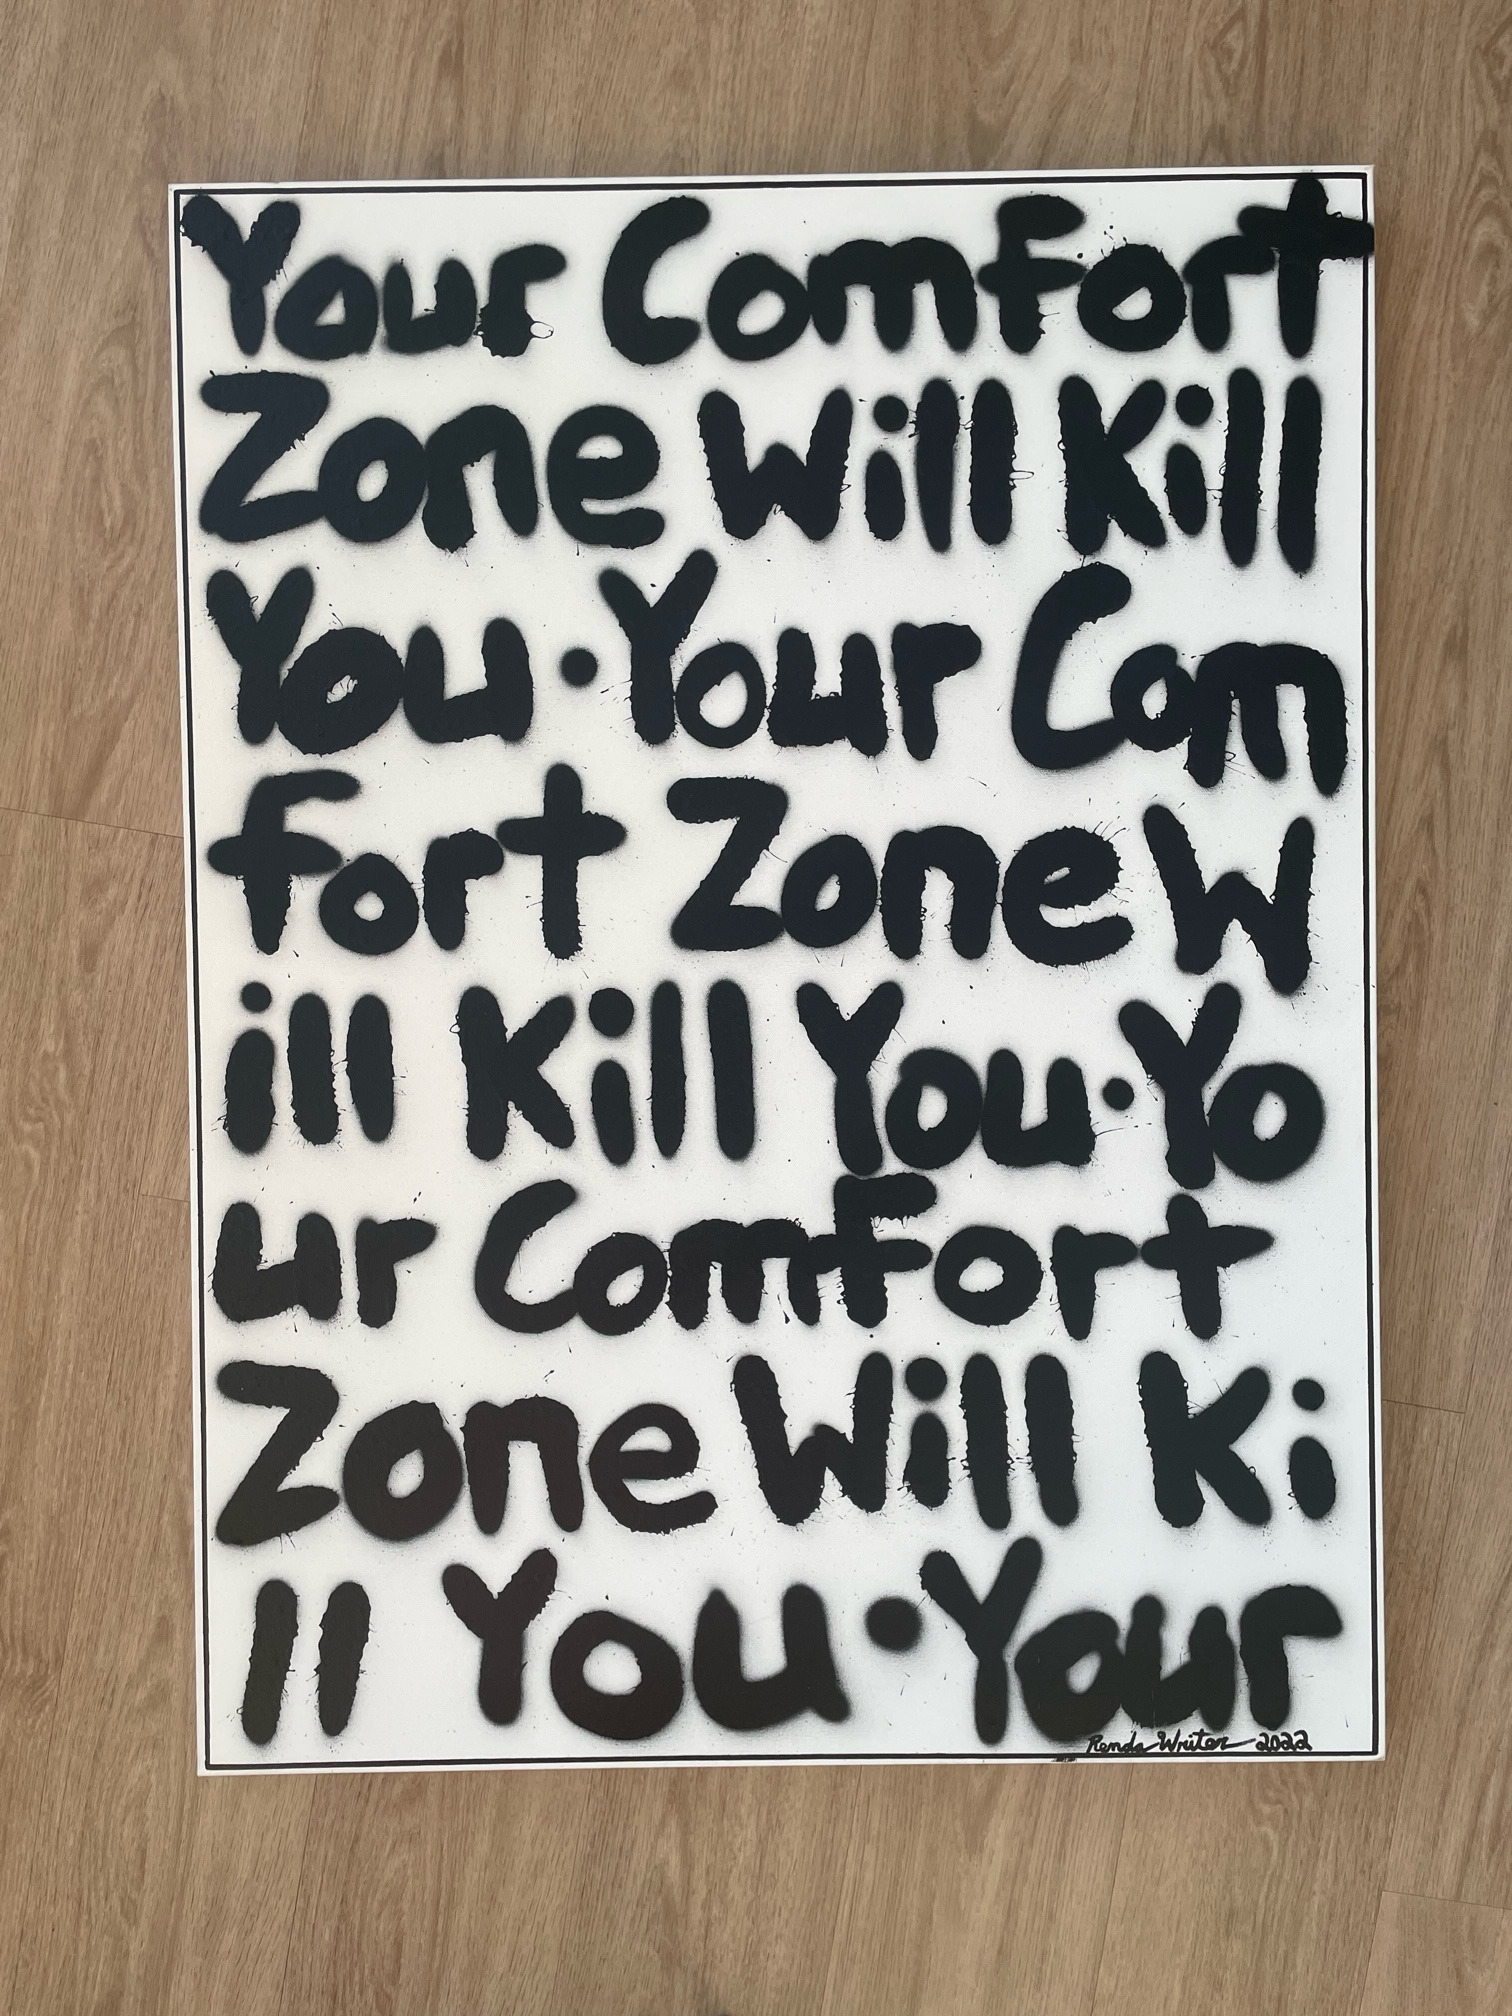 Your Comfort
Zone Will Kill
You•Your Com
fort Zone W
ill Kill You•Yo
ur Comfort
Zone Will Ki
ll You•Your
Renda Writer 2022